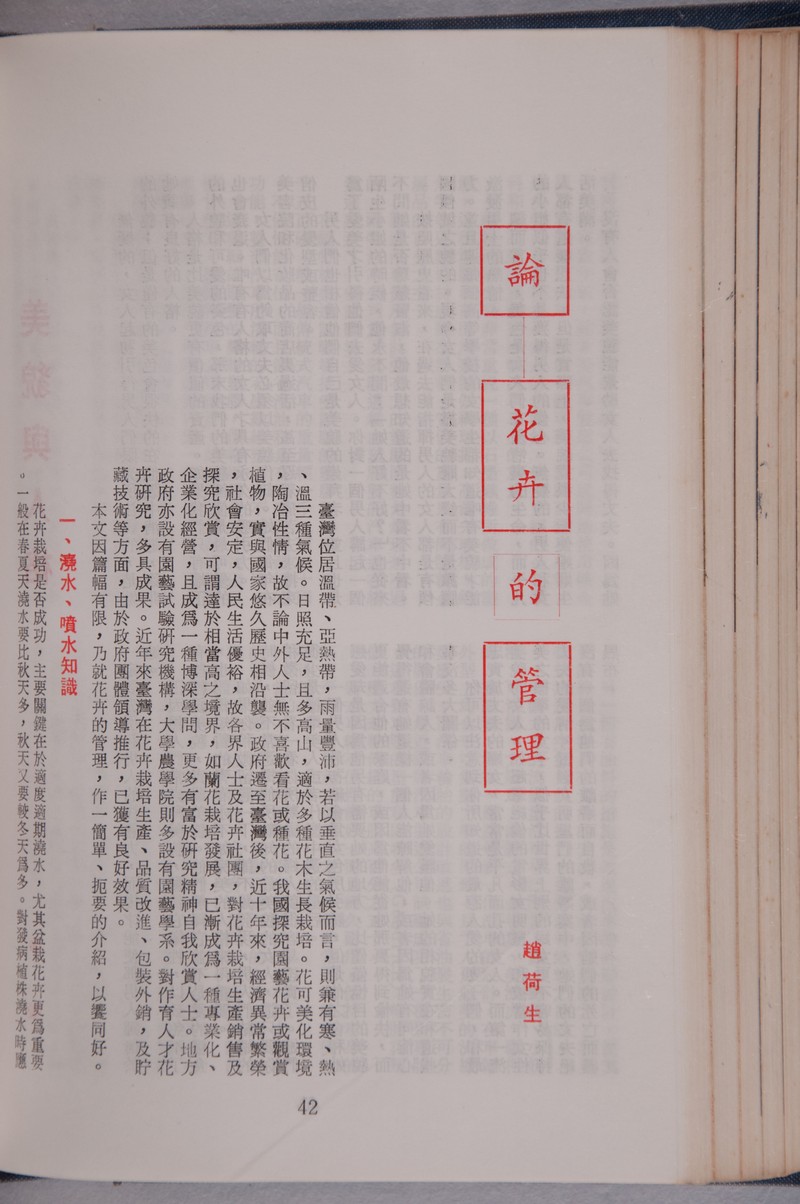 論花卉的管理
趙荷生
臺灣位居溫帶、亞熱帶，雨量豐沛，若以垂直之氣候而言，則兼有寒、熱
、溫三種氣候。日照充足，且多高山，適於多種花木生長栽培。花可美化環境
，陶冶性情，故不論中外人士無不喜歡看花或種花。我國探究園藝花卉或觀賞
植物，實與國家悠久歷史相沿襲。政府遷至臺灣後，近十年來，經濟異常繁榮
，社會安定，人民生活優裕，故各界人士及花卉社團，對花卉栽培生產銷售及
探究欣賞，可謂達於相當高之境界，如蘭花栽培發展，已漸成爲一種專業化、
企業化經營，且成爲一種博深學問，更多有富於研究精神自我欣賞人士。地方
政府亦設有園藝試驗研究機構，大學農學院則多設有園藝學系。對作育人才花
卉研究，多具成果。近年來臺灣在花卉栽培生產、品質改進、包裝外銷，及貯
藏技術等方面，由於政府團體領導推行，已獲有良好效果。
本文因篇幅有限，乃就花卉的管理，作一簡單、扼要的介紹，以饗同好。
一、澆水、噴水知識
花卉栽培是否成功，主要關鍵在於適度適期澆水，尤其盆栽花卉更爲重要
。一般在春夏天澆水要比秋天多，秋天又要較冬天爲多。對發病植株澆水時應
42